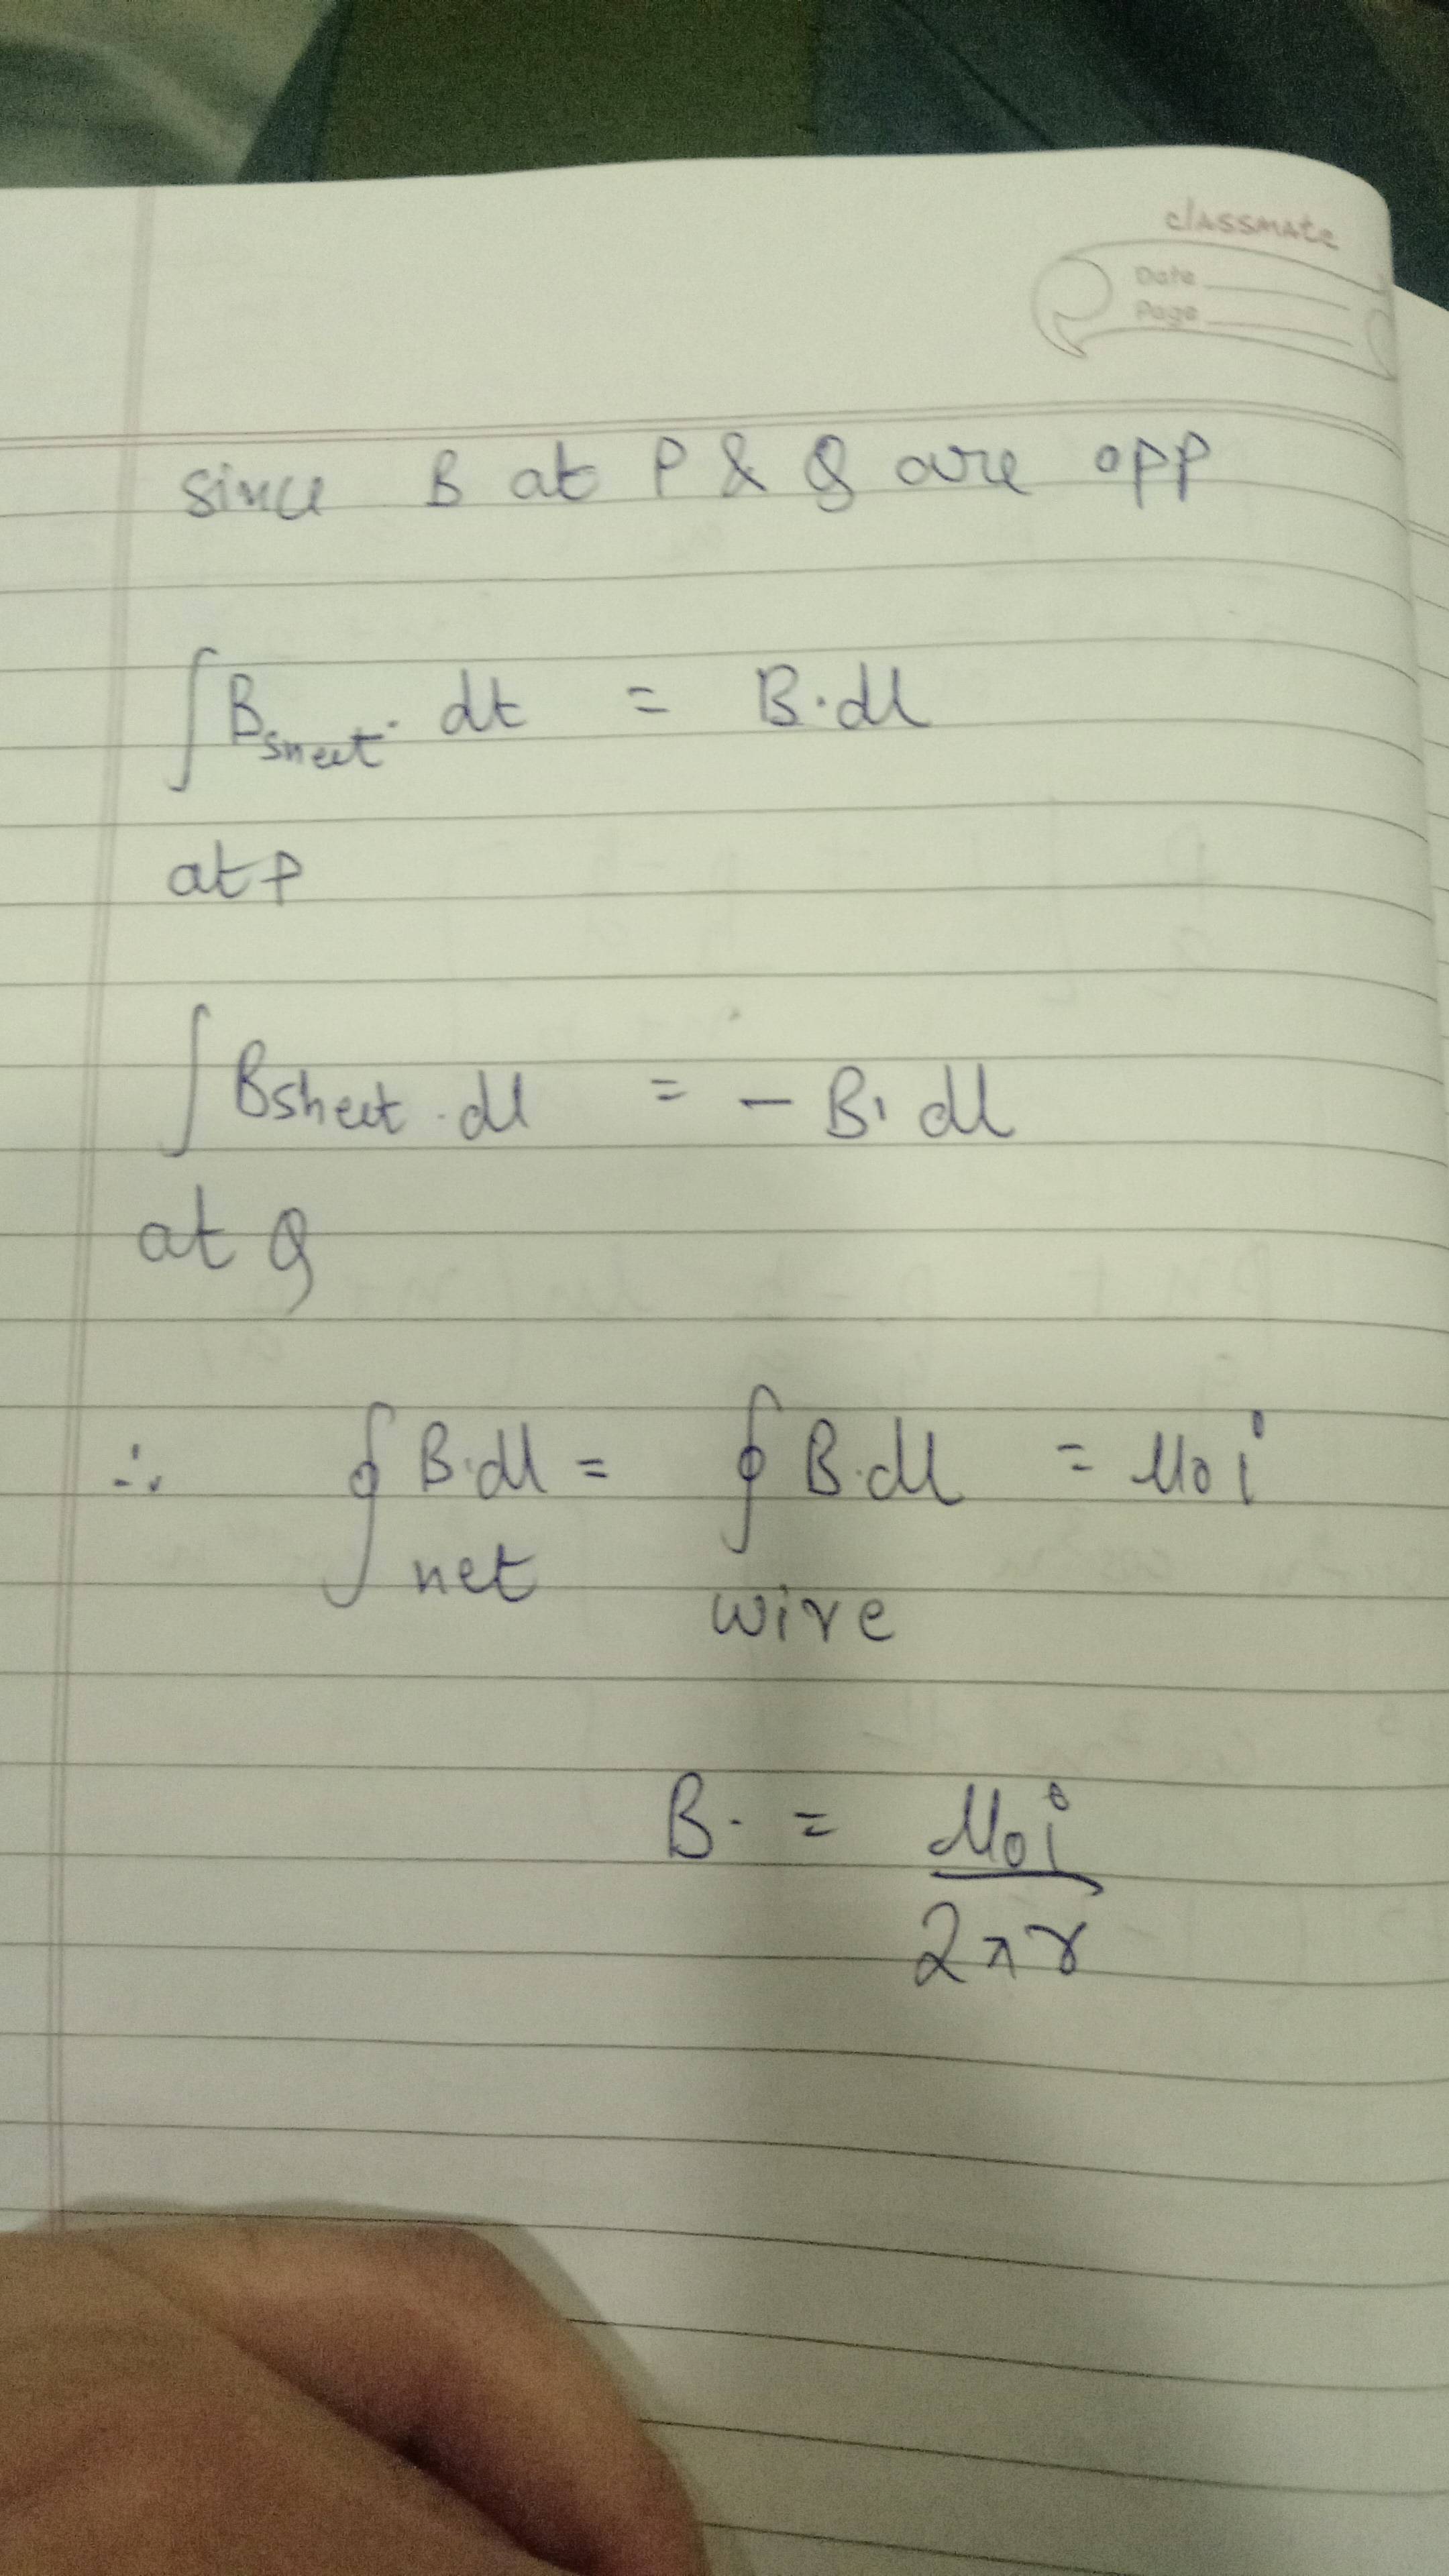 classmate
Date
Page
since B at P & Q are opp
∫ B sheet · dt = B·dl
at P
∫ B sheet · dl = - B· dl
at Q
∴ ∮ B·dl = ∮ B·dl = μ0 i
net wire
B· = μ0 i
2πr